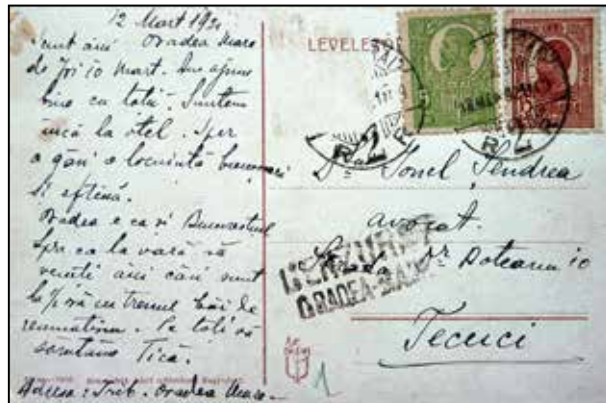 12 Mart 192
Sunt aici Oradea Mare
de Joi 10 Mart. Am ajuns
bine cu totii. Suntem
încă la otel. Sper
a găsi o locuință
și eftină.
Oradea e ca și Bucurestiul
Sper ca la vară să
veniti aici căci sunt
la ½ oră cu trenul băi de
reumatism. Pe toti vă
sărutăm Tică.
Adresa: Trib. Oradea Mare
LEVELEZŐ
2
R
2
R
CENZURAT
ORADEA-MARE
Dlui Ionel Țendrea
avocat.
Strada Dr Poteanu 10
Tecuci
1